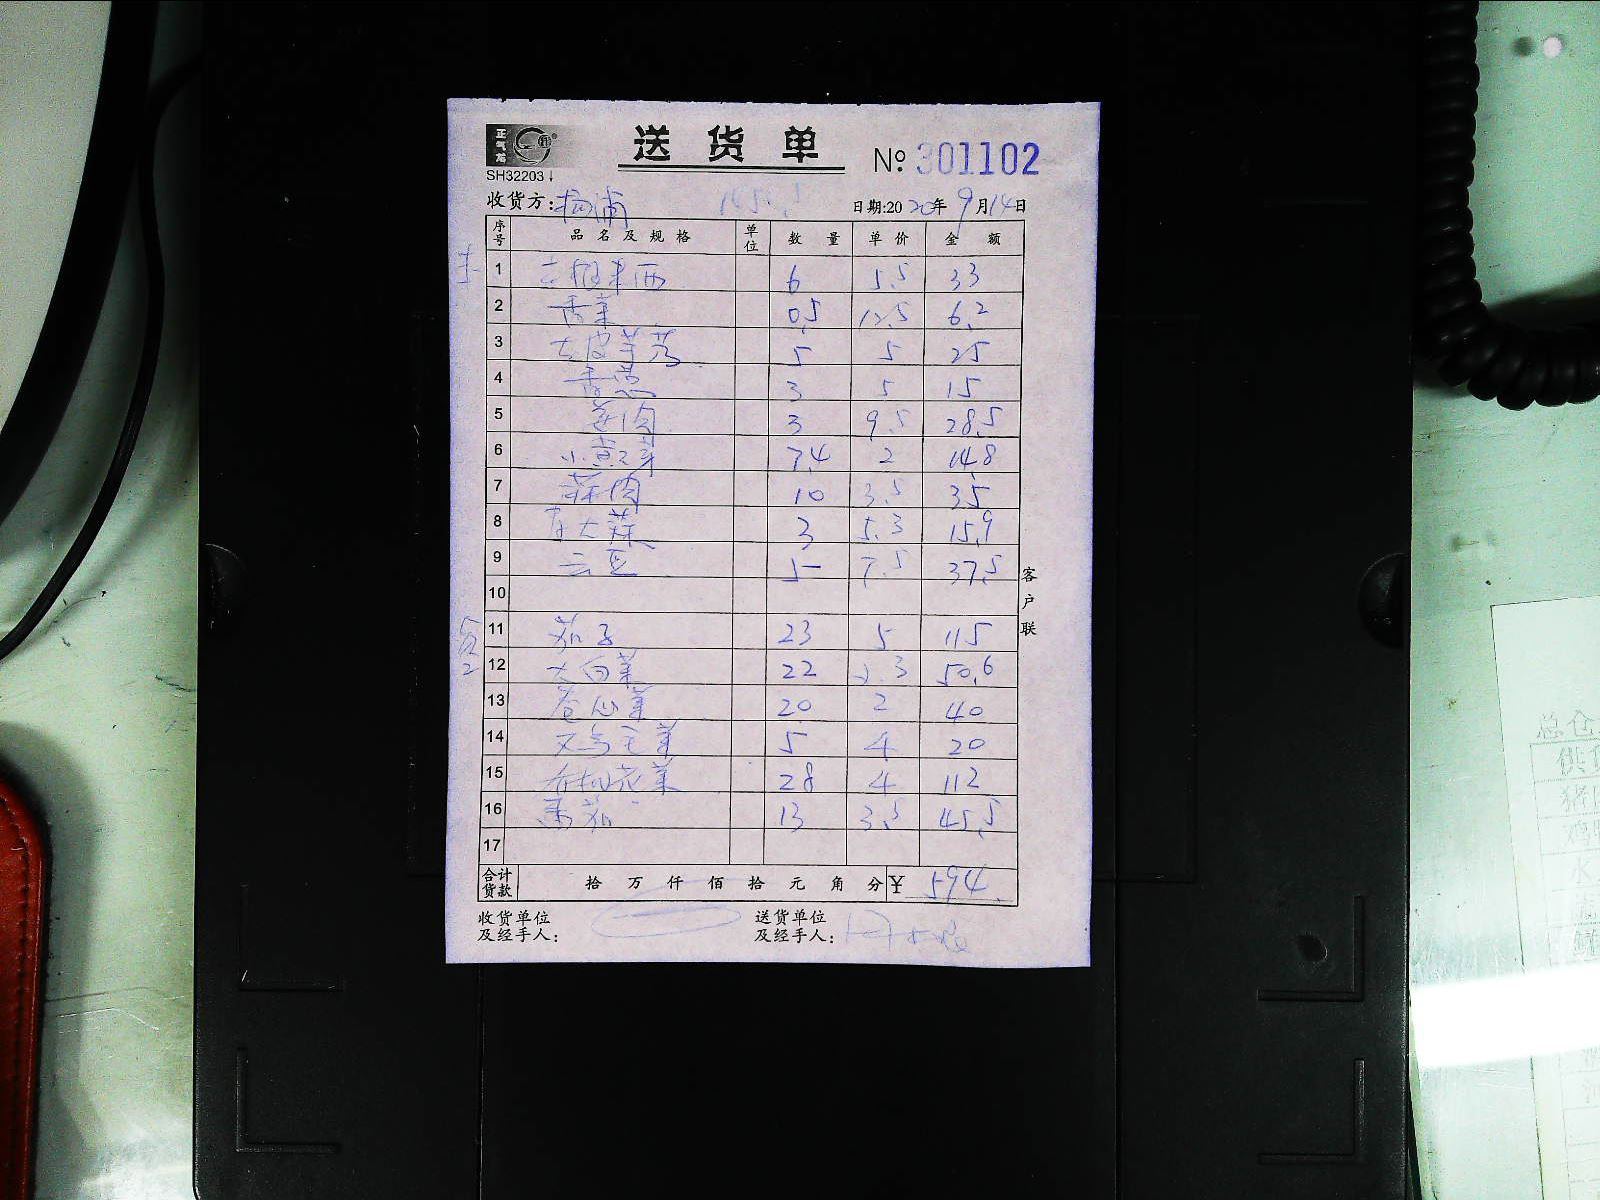 正气局
送货单
№ 301102
SH32203
收货方: 杨浦
日期:2020年9月14日
序号 品名及规格 单位 数量 单价 金额
1 6 5.5 33
2 香菜 0.5 12.5 6.2
3 5 5 25
4 香葱 3 5 15
5 姜肉 3 9.5 28.5
6 小黄芽 7.4 2 14.8
7 蒜肉 10 3.5 35
8 大蒜 3 5.3 15.9
9 云豆 5 7.5 37.5
10
11 茄子 23 5 115
12 大白菜 22 2.3 50.6
13 卷心菜 20 2 40
14 5 4 20
15 有机花菜 28 4 112
16 番茄 13 3.5 45.5
17
合计货款 拾 万 仟 佰 拾 元 角 分 ¥ 594
收货单位及经手人:
送货单位及经手人:
客户联
总仓